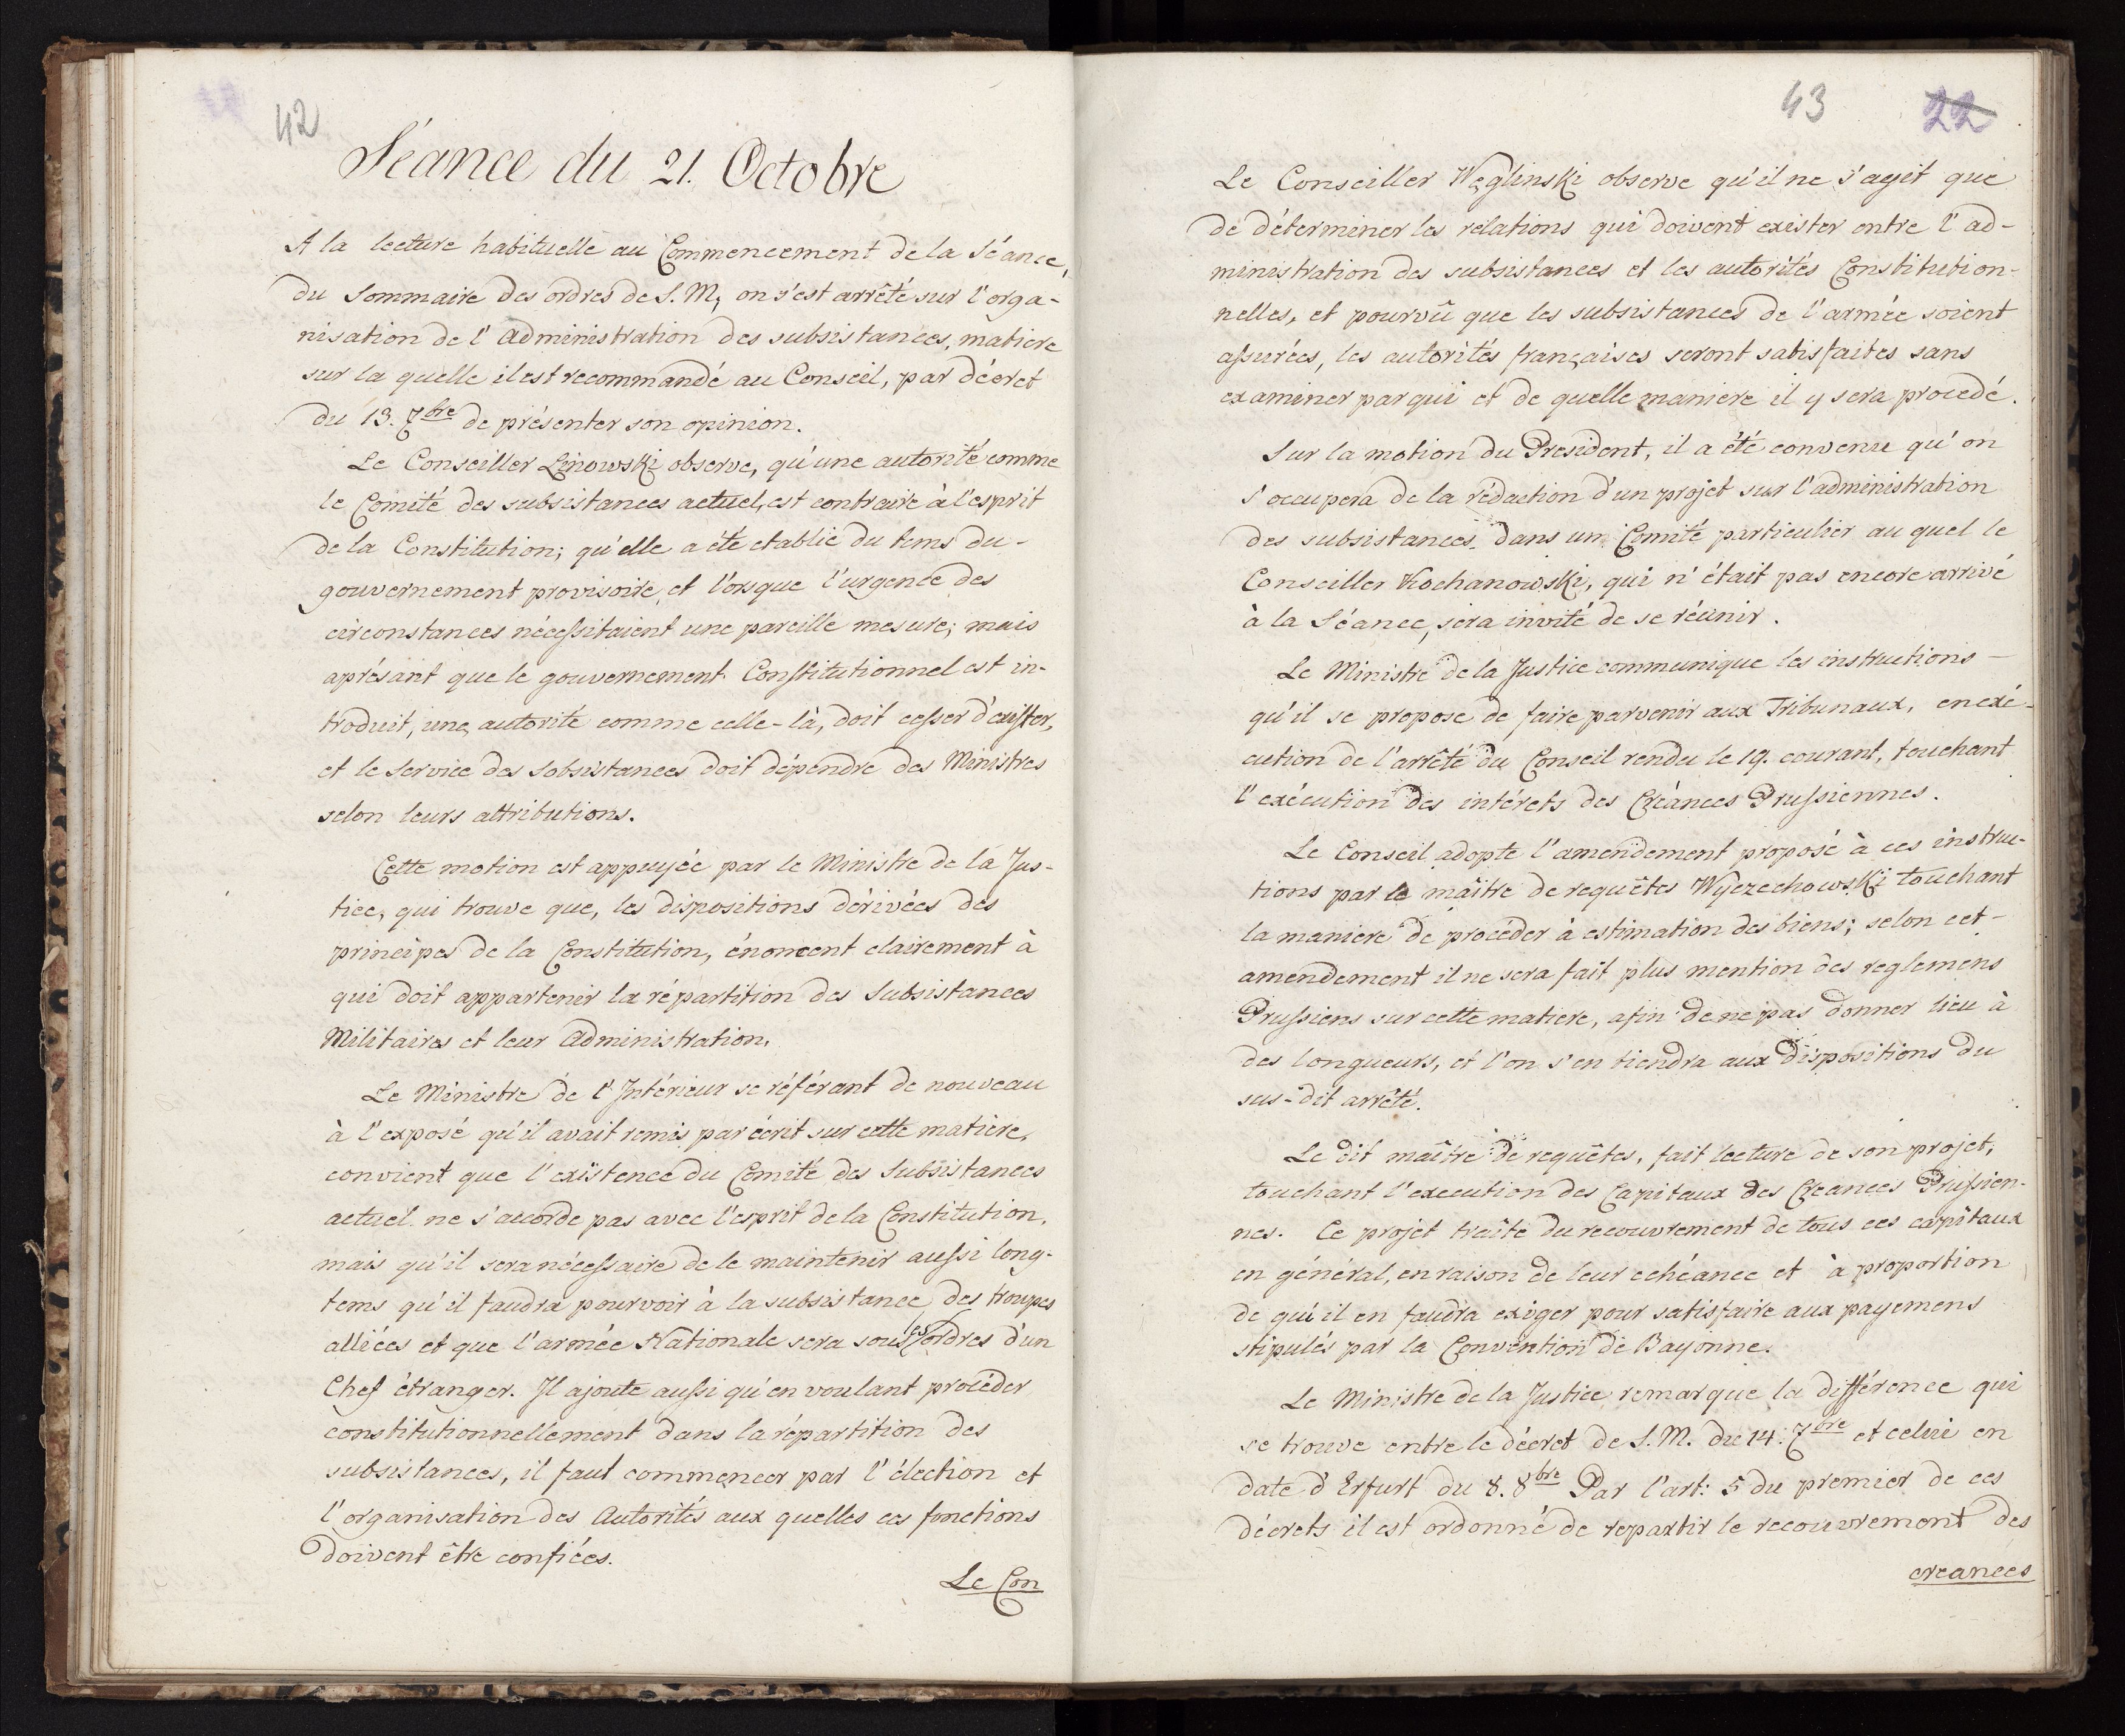 42
Séance du 21. Octobre
A la lecture habituelle au Commencement de la Séance,
du Sommaire des ordres de S. M, on s'est arrêté sur l'orga-
nisation de l'Administration des subsistances, matiere
sur la quelle il est recommandé au Conseil, par décret
du 13. 7bre de présenter son opinion.
Le Conseiller Linowski observe, qu'une autorité comme
le Comité des subsistances actuel, est contraire à l'esprit
de la Constitution; qu'elle a été etablie du tems du-
gouvernement provisoire, et lorsque l'urgence des
circonstances nécessitaient une pareille mesure; mais
aprésant que le gouvernement Constitutionnel est in-
troduit, une autorité comme celle-là, doit cesser d'exister,
et le service des sobsistances doit dépendre des Ministres
selon leurs attributions.
Cette motion est appuyée par le Ministre de la Jus-
tice, qui trouve que, les dispositions dérivées des
principes de la Constitution, énoncent clairement à
qui doit appartenir la répartition des Subsistances
Militaires et leur Administration.
Le Ministre de l'Intérieur se référant de nouveau
à l'exposé qu'il avait remis par écrit sur cette matiere,
convient que l'existence du Comité des Subsistances
actuel ne s'accorde pas avec l'esprit de la Constitution,
mais qu'il sera nécessaire de le maintenir aussi long-
tems qu'il faudra pourvoir à la subsistance des troupes
alliées et que l'armée Nationale sera sous les ordres d'un
Chef étranger. Il ajoute aussi qu'en voulant procéder
constitutionnellement dans la répartition des
subsistances, il faut commencer par l'élection et
l'organisation des Autorités aux quelles ces fonctions
doivent être confiées.
Le Con
43 22
Le Conseiller Węglinski observe qu'il ne s'agit que
de déterminer les relations qui doivent exister entre l'ad-
ministration des subsistances et les autorités Constitution-
nelles, et pourvû que les subsistances de l'armée soient
assurées, les autorités françaises seront satisfaites sans
examiner par qui et de quelle maniere il y sera procedé.
Sur la motion du President, il a été convenu qu'on
s'occupera de la rédaction d'un projet sur l'administration
des subsistances dans un Comité particulier au quel le
Conseiller Kochanowski, qui n'était pas encore arrivé
à la Séance, sera invité de se réunir.
Le Ministre de la Justice communique les instructions
qu'il se propose de faire parvenir aux Tribunaux, en exé-
cution de l'arrêté du Conseil rendu le 19. courant, touchant
l'exécution des intérets des Créances Prussiennes.
Le Conseil adopte l'amendement proposé à ces instruc-
tions par le maître de requêtes Wyczechowski touchant
la maniere de procéder à estimation des biens; selon cet-
amendement il ne sera fait plus mention des reglemens
Prussiens sur cette matiere, afin de ne pas donner lieu à
des longueurs, et l'on s'en tiendra aux dispositions du
sus-dit arrêté.
Le dit maître de requêtes, fait lecture de son projet,
touchant l'execution des Capitaux des Creances Prussien-
nes. Ce projet traite du recouvrement de tous ces capitaux
en général, en raison de leur echéance et à proportion
de qu'il en faudra exiger pour satisfaire aux payemens
stipulés par la Convention de Bayonne.
Le Ministre de la Justice remarque la différence qui
se trouve entre le décret de S. M. du 14. 7bre et celui en
date d'Erfurt du 8. 8bre Par l'art: 5 du premier de ces
décrets il est ordonné de repartir le recouvrement des
creances